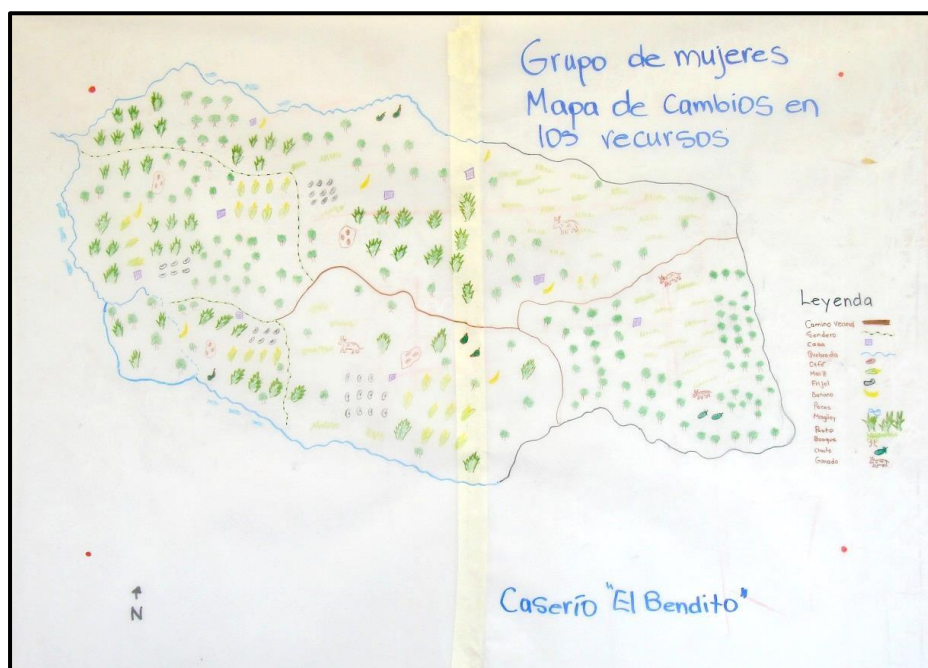 Grupo de mujeres
Mapa de Cambios en
los recursos
Leyenda
Camino Vecinal
Sendero
Casa
Quebrada
Café
Maíz
Frijol
Banano
Peces
Magüey
Pasto
Bosque
Chute
Ganado
N
Caserío "El Bendito"